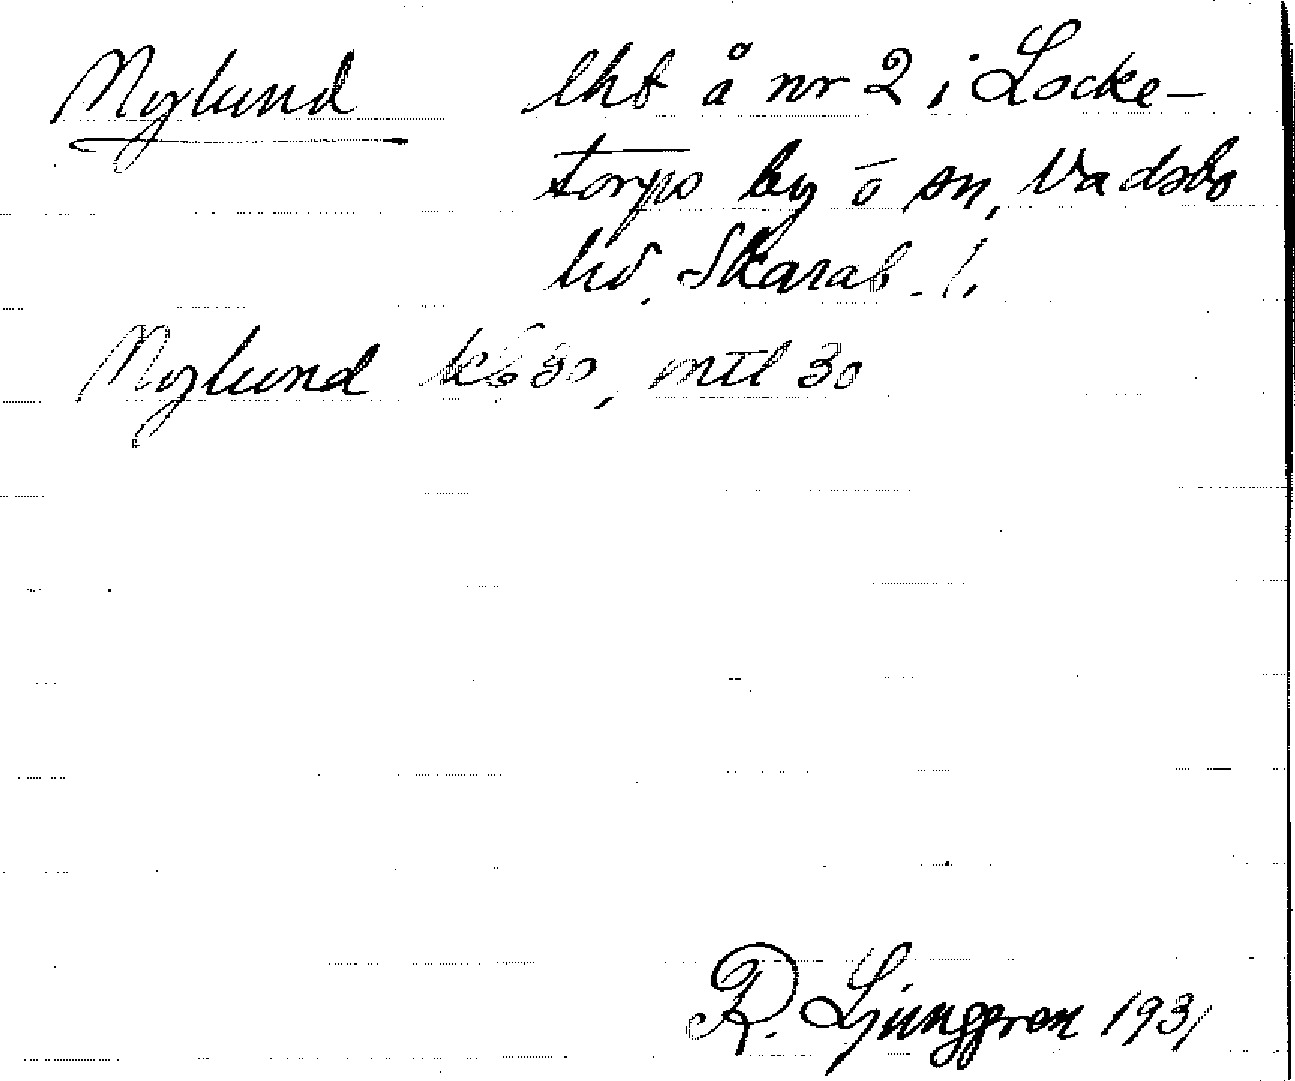 Nylund lht å nr 2 i Locke-
torps by o sn, Vadsbo
hd. Skarab. l.
Nylund kb 30, mtl 30
R. Ljunggren 1931